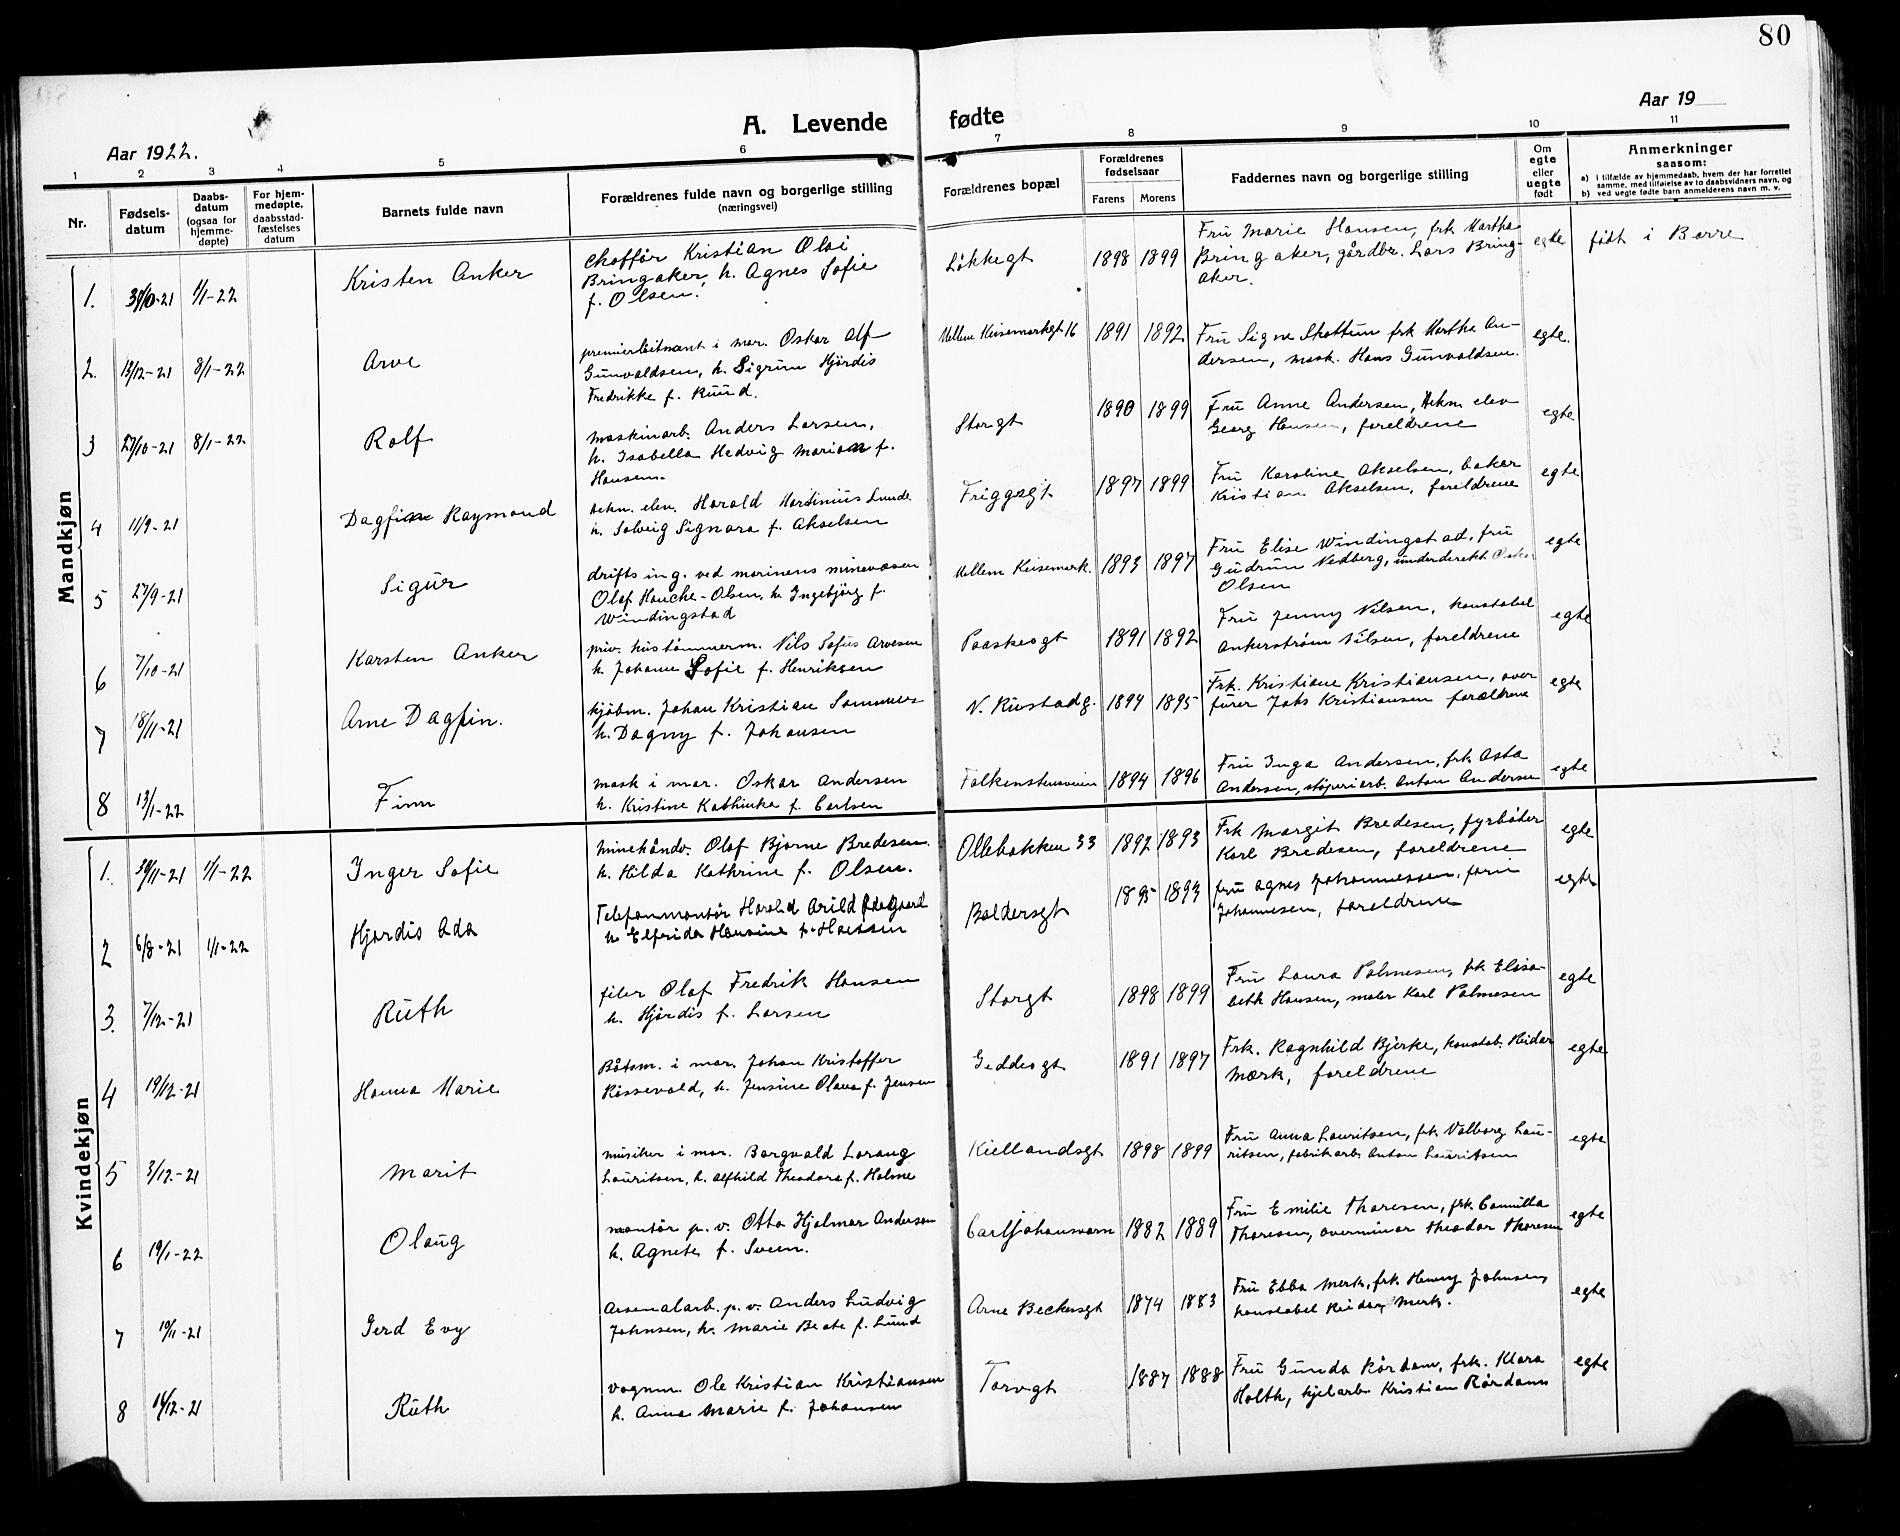 80
Aar 1922.
A. Levende fødte
Aar 19
1 2 3 4 5 6 7 8 9 10 11
Nr.
Fødsels-
datum
Daabs-
datum
(ogsaa for
hjemme-
døpte)
For hjem-
medøpte,
daabsstad-
fæstelses
datum
Barnets fulde navn
Forældrenes fulde navn og borgerlige stilling
(næringsvei)
Forældrenes bopæl
Forældrenes
fødselsaar
Farens Morens
Faddernes navn og borgerlige stilling
Om
egte
eller
uegte
født
Anmerkninger
saasom:
a) i tilfælde av hjemmedaab, hvem der har forrettet
samme, med tilføielse av to daabsvidners navn, og
b) ved uegte fødte barn anmelderens navn m. v.
Mandkjøn
1. 31/10-21 1/1-22 Kristen Anker
choffør Kristian Olai
Bringaker, h. Agnes Sofie
f. Olsen.
Løkkegt 1898 1899
Fru Marie Hansen, frk Martha
Bringaker, gårdbr. Lars Bring-
aker.
egte født i Borre
2. 13/12-21 8/1-22 Arve
premierløitnant i mar. Oskar Alf
Gunvaldsen, h. Sigrun Hjördis
Fredrikke f. Ruud.
Mellem Keisemarkgt 16 1891 1892
Fru Signe Skottum frk Martha An-
dersen, mask. Hans Gunvaldsen.
egte.
3 27/10-21 8/1-22 Rolf
maskinarb. Anders Larsen,
h. Isabella Hedvig Marian f.
Hansen.
Storgt 1890 1899
Fru Anne Andersen, tekn elev
Georg Hansen, foreldrene
egte
4 11/9-21 Dagfinn Raymond
tekn. elev. Harald Martinius Lunde
h. Solveig Signora f. Akselsen
Friggsgt 1897 1899
Fru Karoline Akselsen, baker
Kristian Akselsen, foreldrene
egte
5 27/9-21 Sigur
drifts ing. ved marinens minevæsen
Olaf Hauche-Olsen, h. Ingebjörg f.
Windingstad
Mellem Keisemark. 1893 1897
Fru Elise Windingstad, fru
Gudrun Nedberg, underdirekt
Olsen
egte
6 7/10-21 Karsten Anker
priv. hustømmerm. Nils Sofus Arvesen
h. Johanne Sofie f. Henriksen
Paaskesgt 1891 1892
Fru Jenny Nilsen, konstabel
Ankerstrøm Nilsen, foreldrene
egte
7 18/11-21 Arne Dagfin.
kjøbm. Johan Kristian Sommer
h. Dagny f. Johansen
N. Rustadg. 1894 1895
Frk. Kristiane Kristiansen, over
fürer Jahs Kristiansen forældrene
egte
8 13/1-22 Finn
mask i mar. Oskar Andersen
h. Kristine Kathinka f. Carlsen
Falkenstensveien 1894 1896
Fru Inga Andersen, frk Asta
Andersen, støperiarb. Anton Andersen
egte
Kvindekjøn
1. 30/11-21 1/1-22 Inger Sofie
minehåndv. Olaf Bjarne Bredesen.
h. Hilda Kathrine f. Olsen.
Ollebakken 33 1892 1893
Frk Margit Bredesen, fyrbøter
Karl Bredesen, foreldrene
egte
2 6/8-21 1/1-22 Hjørdis Ada
Telefonmontör Harald Arild Ödegaard
h. Elfrida Hansine f. Hansen
Baldersgt 1895 1893
fru Agnes Johannessen,
Johannesen, foreldrene
egte
3. 7/12-21 Ruth
filer Olaf Fredrik Hansen
h. Hjördis f. Larsen
Storgt 1898 1899
Fru Laura Palmesen, frk Elisa-
beth Hansen, maler Karl Palmesen
egte
4 19/12-21 Hanna Marie
Båtsm. i mar. Johan Kristoffer
Rossevold, h. Jensine Olava f. Jensen
Geddesgt 1891 1897
Frk. Ragnhild Bjerke, konstab. Reidar
Mærk, foreldrene
egte
5 3/12-21 Marit
musiker i mar. Borgvald Lorang
Lauritsen, h. Alfhild Theodora f. Holme
Kiellandsgt 1898 1899
Fru Anna Lauritsen, frk Valborg Lau-
ritsen, fabrikarb. Anton Lauritsen
egte
6 19/1-22 Olaug
montör p. v. Otto Hjalmar Andersen
h. Agnete f. Sveen.
Carljohansvarn 1882 1889
Fru Emilie Thoresen, frk. Camilla
Thoresen, overminør Theodor Thoresen
egte
7 19/11-21 Gerd Evy
Arsenalarb. p. v. Anders Ludvig
Johnsen, h. Marie Beate f. Lund
Arne Beckersgt 1874 1883
Fru Ebba Merk, frk. Henny Johnsen,
konstabel Reidar Merk.
egte
8 14/12-21 Ruth
vognm. Ole Kristian Kristiansen
h. Anna Marie f. Johansen
Torvgt 1887 1888
Fru Gunda Rördam, frk. Klara
Holth, kjelarb. Kristian Rördam
egte